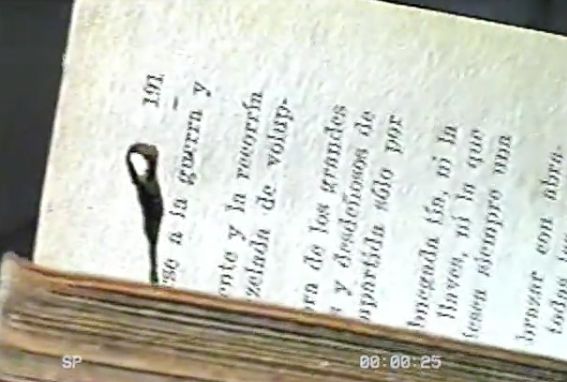 191
se a la guerra y
ente y la recorrín
zelada de volup-
ra de los grandes
s y desdeñosos de
mpartida sólo por
bnegada tía, ni la
llaves, ni la que
iesen siempre una
brazar con abra-
todas las
SP 00:00:25